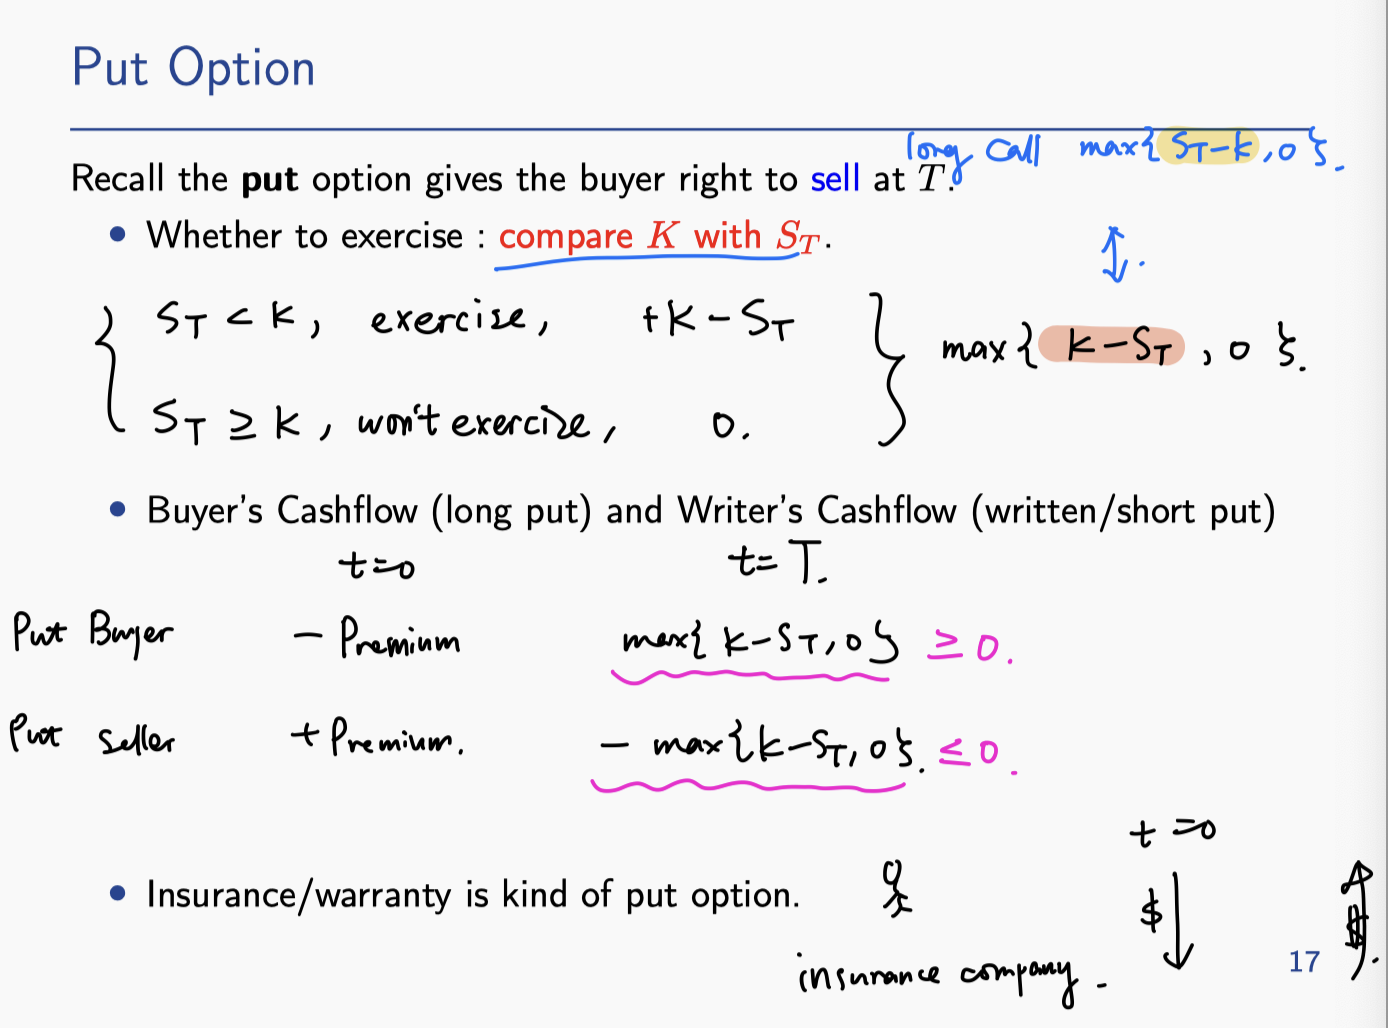 Put Option
long call max{S_T-k,0}.
Recall the put option gives the buyer right to sell at T.
• Whether to exercise : compare K with S_T.
S_T < k, exercise, +k-S_T
max{ k-S_T, 0 }.
S_T ≥ k, won't exercise, 0.
• Buyer's Cashflow (long put) and Writer's Cashflow (written/short put)
t=0 t=T.
Put Buyer - Premium max{k-S_T,0} ≥ 0.
Put seller + Premium. - max{k-S_T,0}. ≤ 0.
t=0
• Insurance/warranty is kind of put option.
$ $.
insurance company.
17